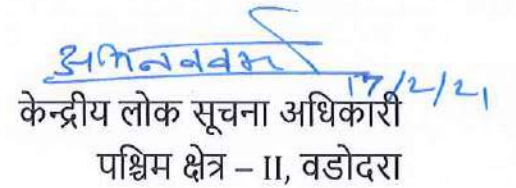 अभिनव वर्मा
17/2/21
केन्द्रीय लोक सूचना अधिकारी
पश्चिम क्षेत्र – II, वडोदरा